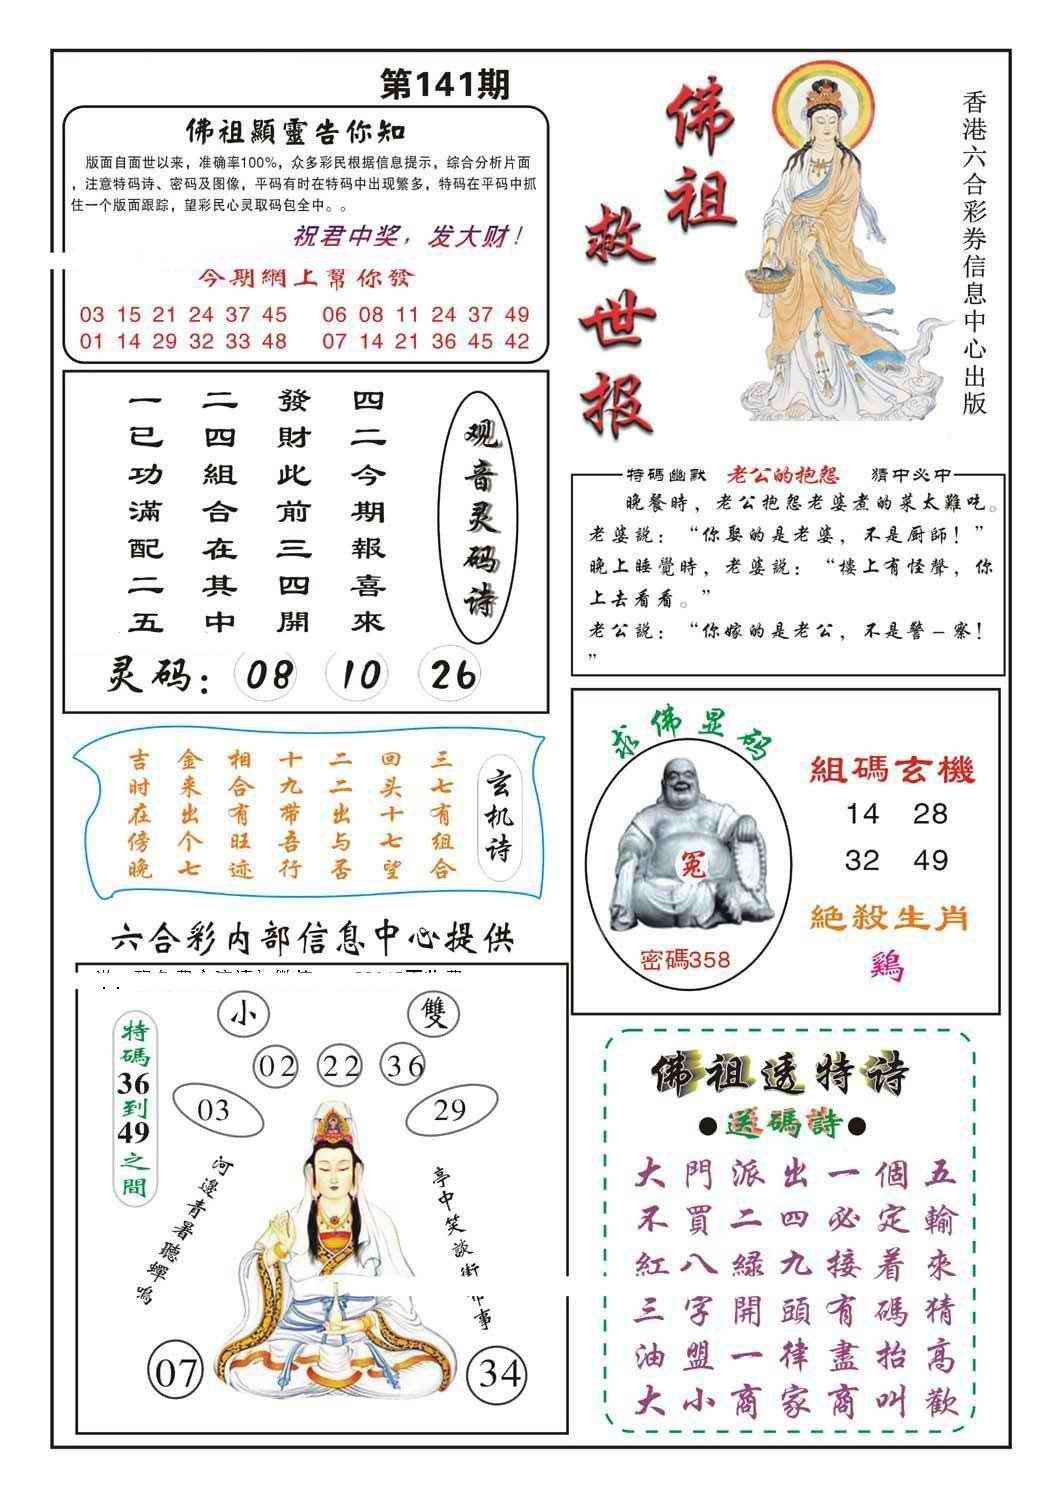 第141期
佛祖顯靈告你知
版面自面世以来，准确率100%，众多彩民根据信息提示，综合分析片面
，注意特码诗、密码及图像，平码有时在特码中出现繁多，特码在平码中抓
住一个版面跟踪，望彩民心灵取码包全中。。
祝君中奖，发大财！
今期網上幫你發
03 15 21 24 37 45 06 08 11 24 37 49
01 14 29 32 33 48 07 14 21 36 45 42
佛祖
救世报
香港六合彩券信息中心出版
观音灵码诗
四二今期報喜來
發財此前三四開
二四組合在其中
一已功滿配二五
灵码：08 10 26
特碼幽默 老公的抱怨 猜中必中
晚餐時，老公抱怨老婆煮的菜太難吃。
老婆說：“你娶的是老婆，不是厨師！”
晚上睡覺時，老婆說：“樓上有怪聲，你
上去看看。”
老公說：“你嫁的是老公，不是警－察！
”
玄机诗
三七有组合
回头十七望
二二出与否
十九带吾行
相合有旺迹
金来出个七
吉时在傍晚
求佛显码
冤
密碼358
組碼玄機
14 28
32 49
絶殺生肖
鷄
六合彩内部信息中心提供
小 雙
02 22 36
03 29
特碼36到49之間
河邊青暑聽蟬鳴
亭中笑談街
事
07 34
佛祖透特诗
●送碼詩●
大門派出一個五
不買二四必定輸
紅八綠九接着來
三字開頭有碼猜
油盟一律盡抬高
大小商家商叫歡